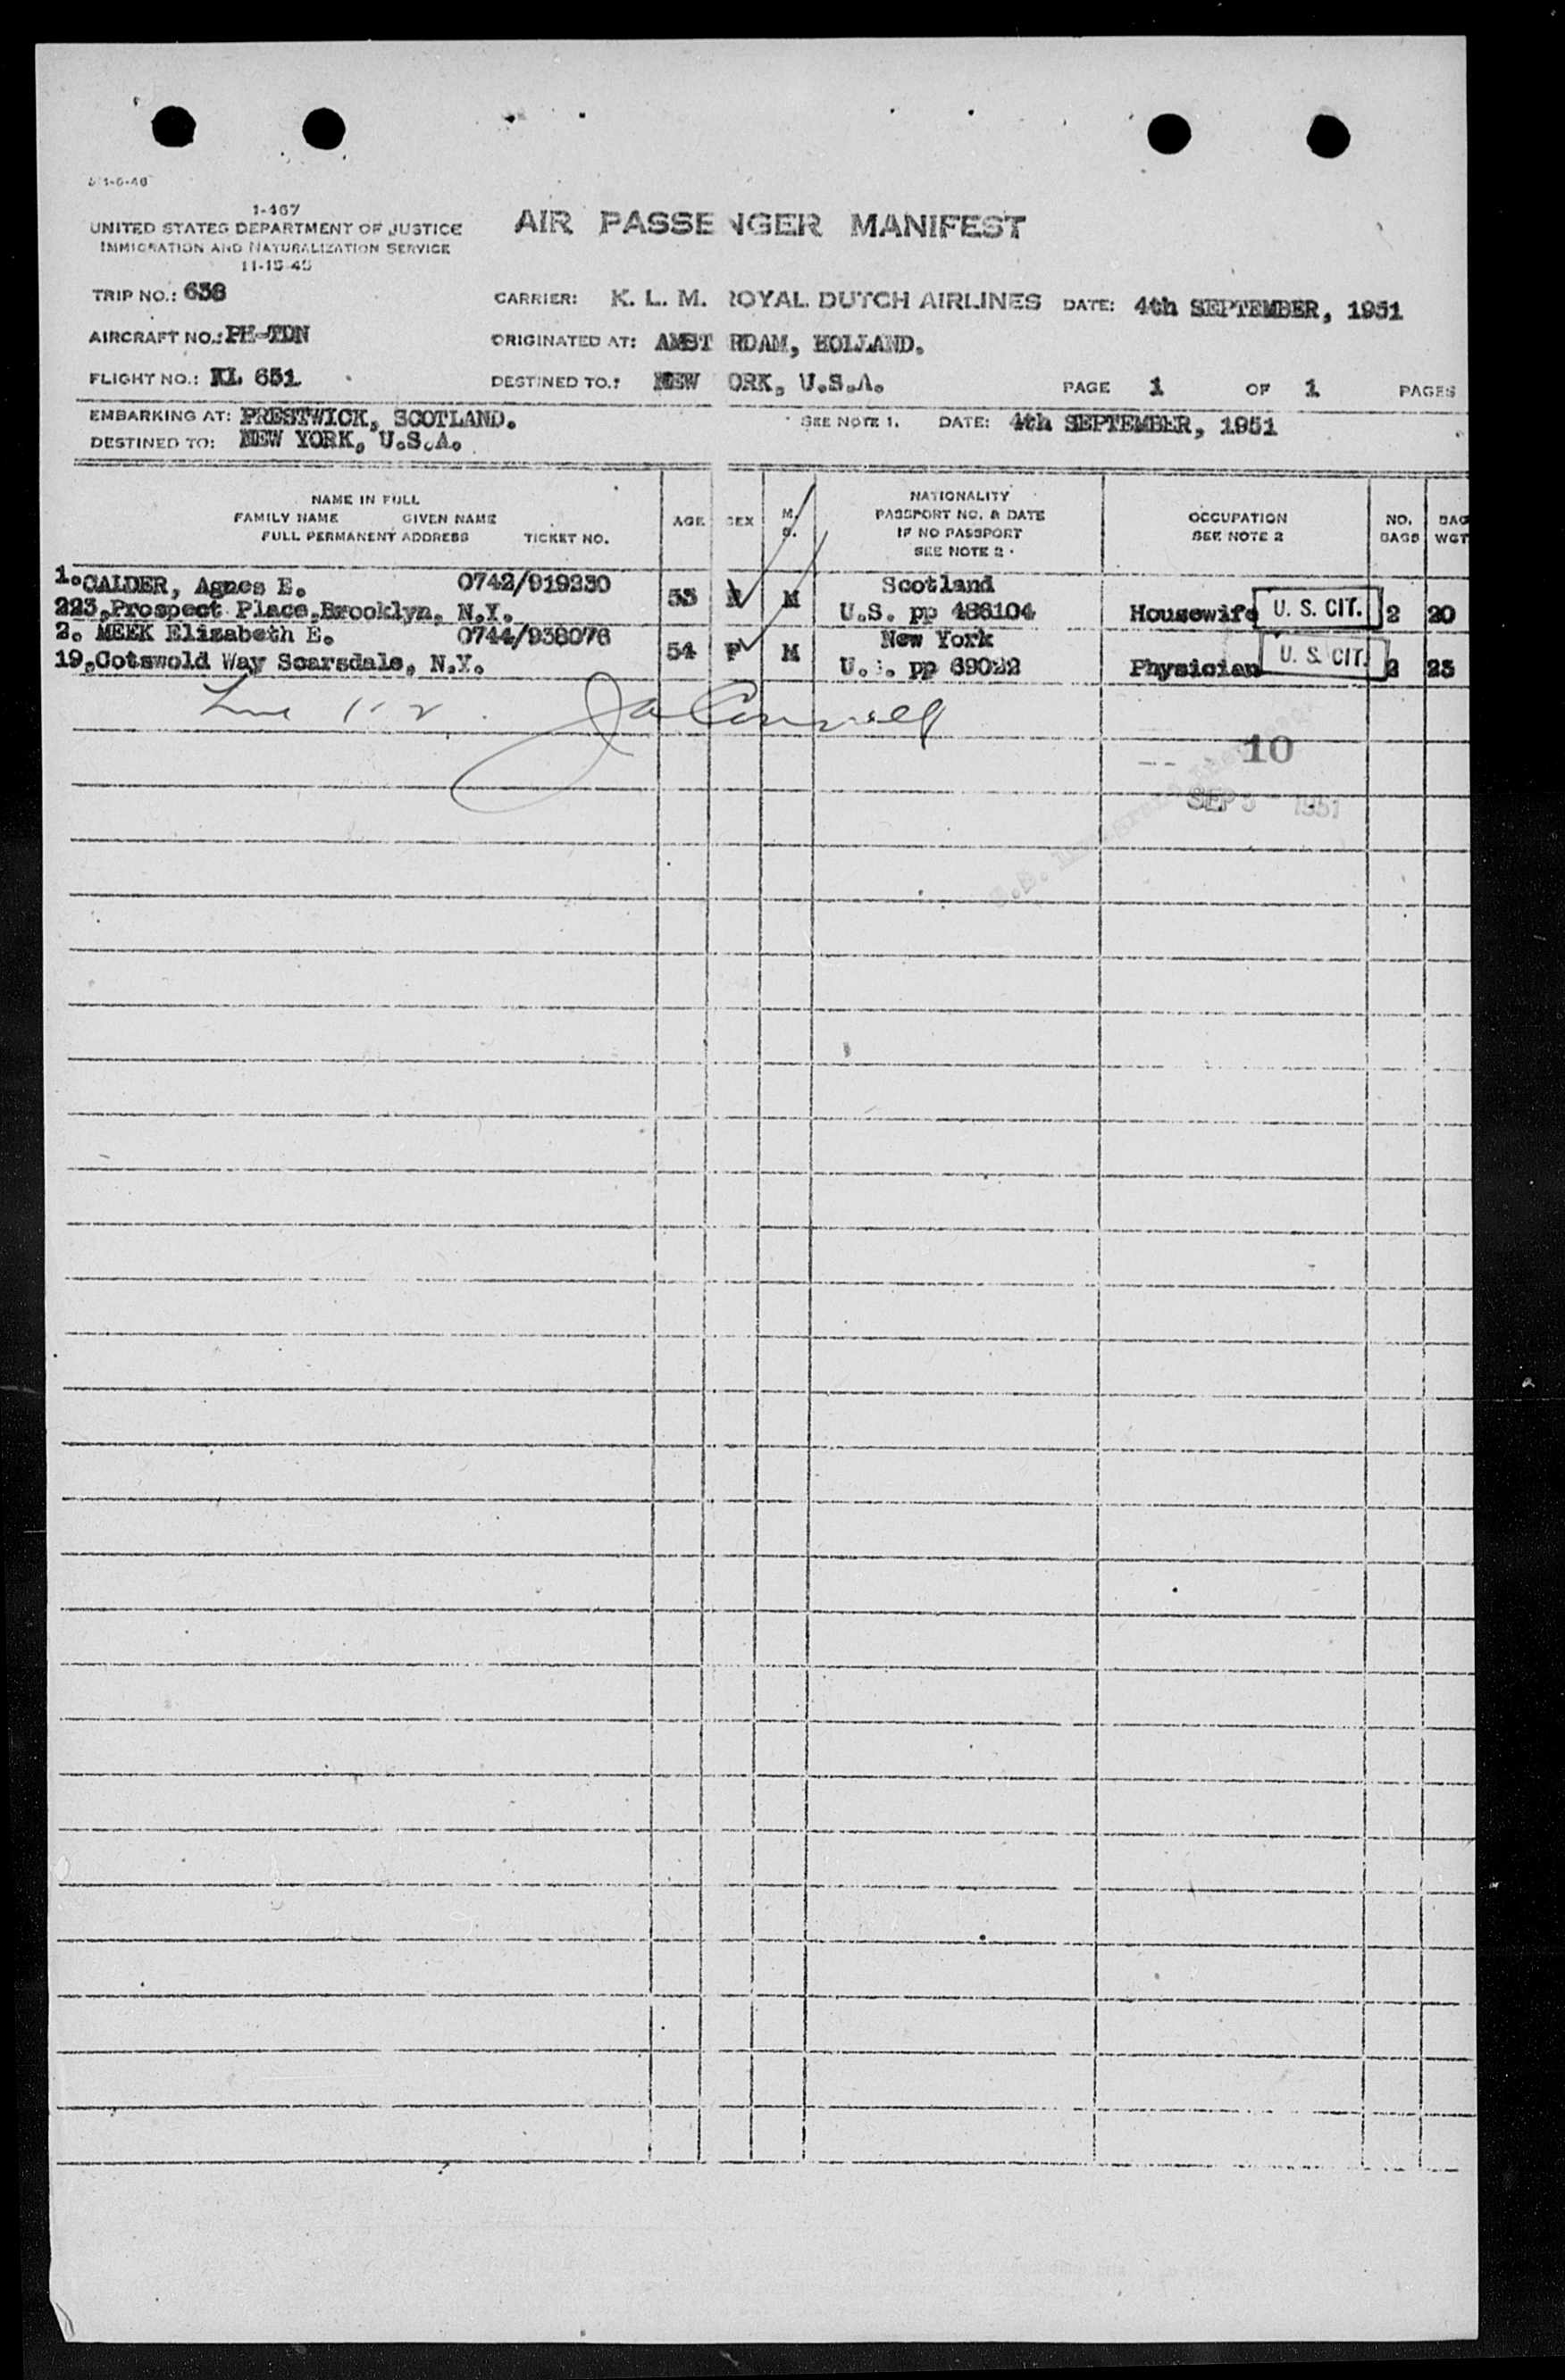 1-467
UNITED STATES DEPARTMENT OF JUSTICE
IMMIGRATION AND NATURALIZATION SERVICE
11-15-45
AIR PASSENGER MANIFEST
TRIP NO.: 638
CARRIER: K. L. M. ROYAL DUTCH AIRLINES DATE: 4th SEPTEMBER, 1951
AIRCRAFT NO.: PH-TDN
ORIGINATED AT: AMST RDAM, HOLLAND.
FLIGHT NO.: KL 651
DESTINED TO.: NEW ORK, U.S.A. PAGE 1 OF 1 PAGES
EMBARKING AT: PRESTWICK, SCOTLAND. SEE NOTE 1. DATE: 4th SEPTEMBER, 1951
DESTINED TO: NEW YORK, U.S.A.
NAME IN FULL
FAMILY NAME GIVEN NAME
FULL PERMANENT ADDRESS TICKET NO.
AGE SEX M. S.
NATIONALITY
PASSPORT NO. & DATE
IF NO PASSPORT
SEE NOTE 2
OCCUPATION
SEE NOTE 2
NO. BAGS
BAG WGT
1. CALDER, Agnes E. 0742/919230 53 M Scotland
223, Prospect Place, Brooklyn, N.Y. U.S. pp 486104 Housewife U. S. CIT. 2 20
2. MEEK Elizabeth E. 0744/938076 54 F M New York
19, Cotswold Way Scarsdale, N.Y. U. . pp 69022 Physician U. S. CIT. 2 23
Line 1-2
10
SEP 5 1951